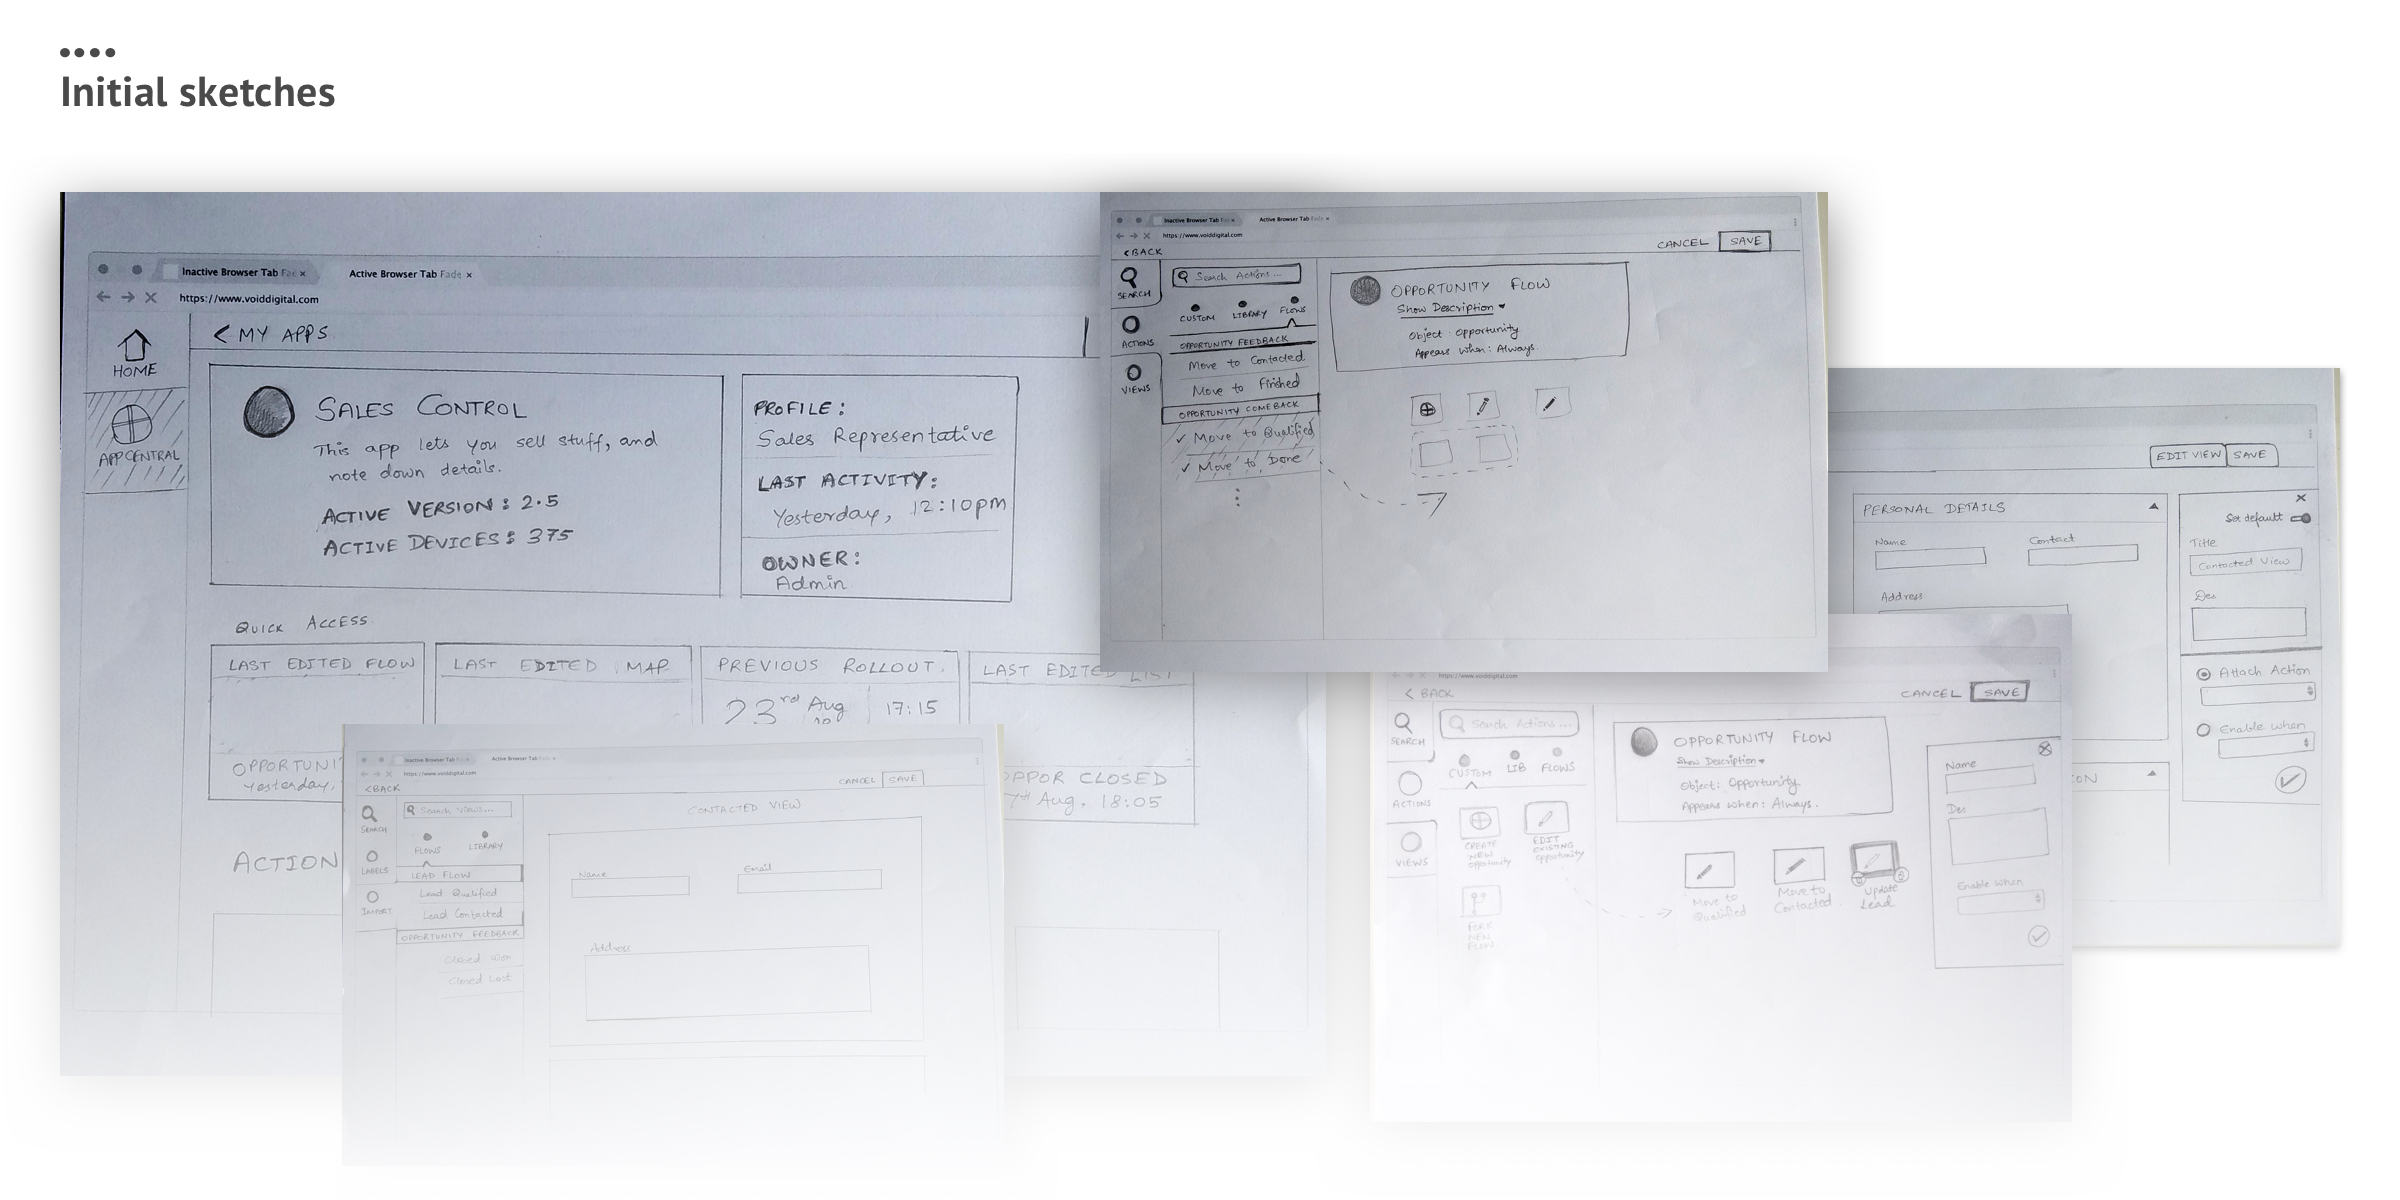 Initial sketches
Inactive Browser Tab Fad ×
Active Browser Tab Fade ×
https://www.voiddigital.com
HOME
APP CENTRAL
< MY APPS
SALES CONTROL
This app lets you sell stuff, and
note down details.
ACTIVE VERSION: 2.5
ACTIVE DEVICES: 375
PROFILE:
Sales Representative
LAST ACTIVITY:
Yesterday, 12:10pm
OWNER:
Admin
QUICK ACCESS
LAST EDITED FLOW
LAST EDITED MAP
PREVIOUS ROLLOUT.
LAST EDITED LIST
23rd Aug
17:15
OPPORTUNI
Yesterday,
OPPOR CLOSED
7th Aug. 18:05
ACTION
Inactive Browser Tab Fad ×
Active Browser Tab Fade ×
https://www.voiddigital.com
< BACK
CANCEL
SAVE
SEARCH
ACTIONS
VIEWS
Search Actions...
CUSTOM
LIBRARY
FLOWS
OPPORTUNITY FEEDBACK
Move to Contacted
Move to Finished
OPPORTUNITY COMEBACK
✓ Move to Qualified
✓ Move to Done
OPPORTUNITY FLOW
Show Description
Object: Opportunity
Appears when: Always.
EDIT VIEW
SAVE
PERSONAL DETAILS
Name
Contact
Address
ON
×
Set default
Title
Contacted View
Des
Attach Action
Enable when
Inactive Browser Tab Fad ×
Active Browser Tab Fade ×
https://www.voiddigital.com
< BACK
CANCEL
SAVE
SEARCH
LABELS
IMPORT
Search Views...
FLOWS
LIBRARY
LEAD FLOW
Lead Qualified
Lead Contacted
OPPORTUNITY FEEDBACK
Closed Won
Closed Lost
CONTACTED VIEW
Name
Email
Address
https://www.voiddigital.com
< BACK
CANCEL
SAVE
SEARCH
ACTIONS
VIEWS
Search Actions...
CUSTOM
LIB
FLOWS
CREATE
NEW
Opportunity
EDIT
EXISTING
Opportunity
FORK
NEW
FLOW
OPPORTUNITY FLOW
Show Description
Object: Opportunity
Appears when: Always.
Move to
Qualified
Move to
Contacted
Update
Lead
Name
Des
Enable when